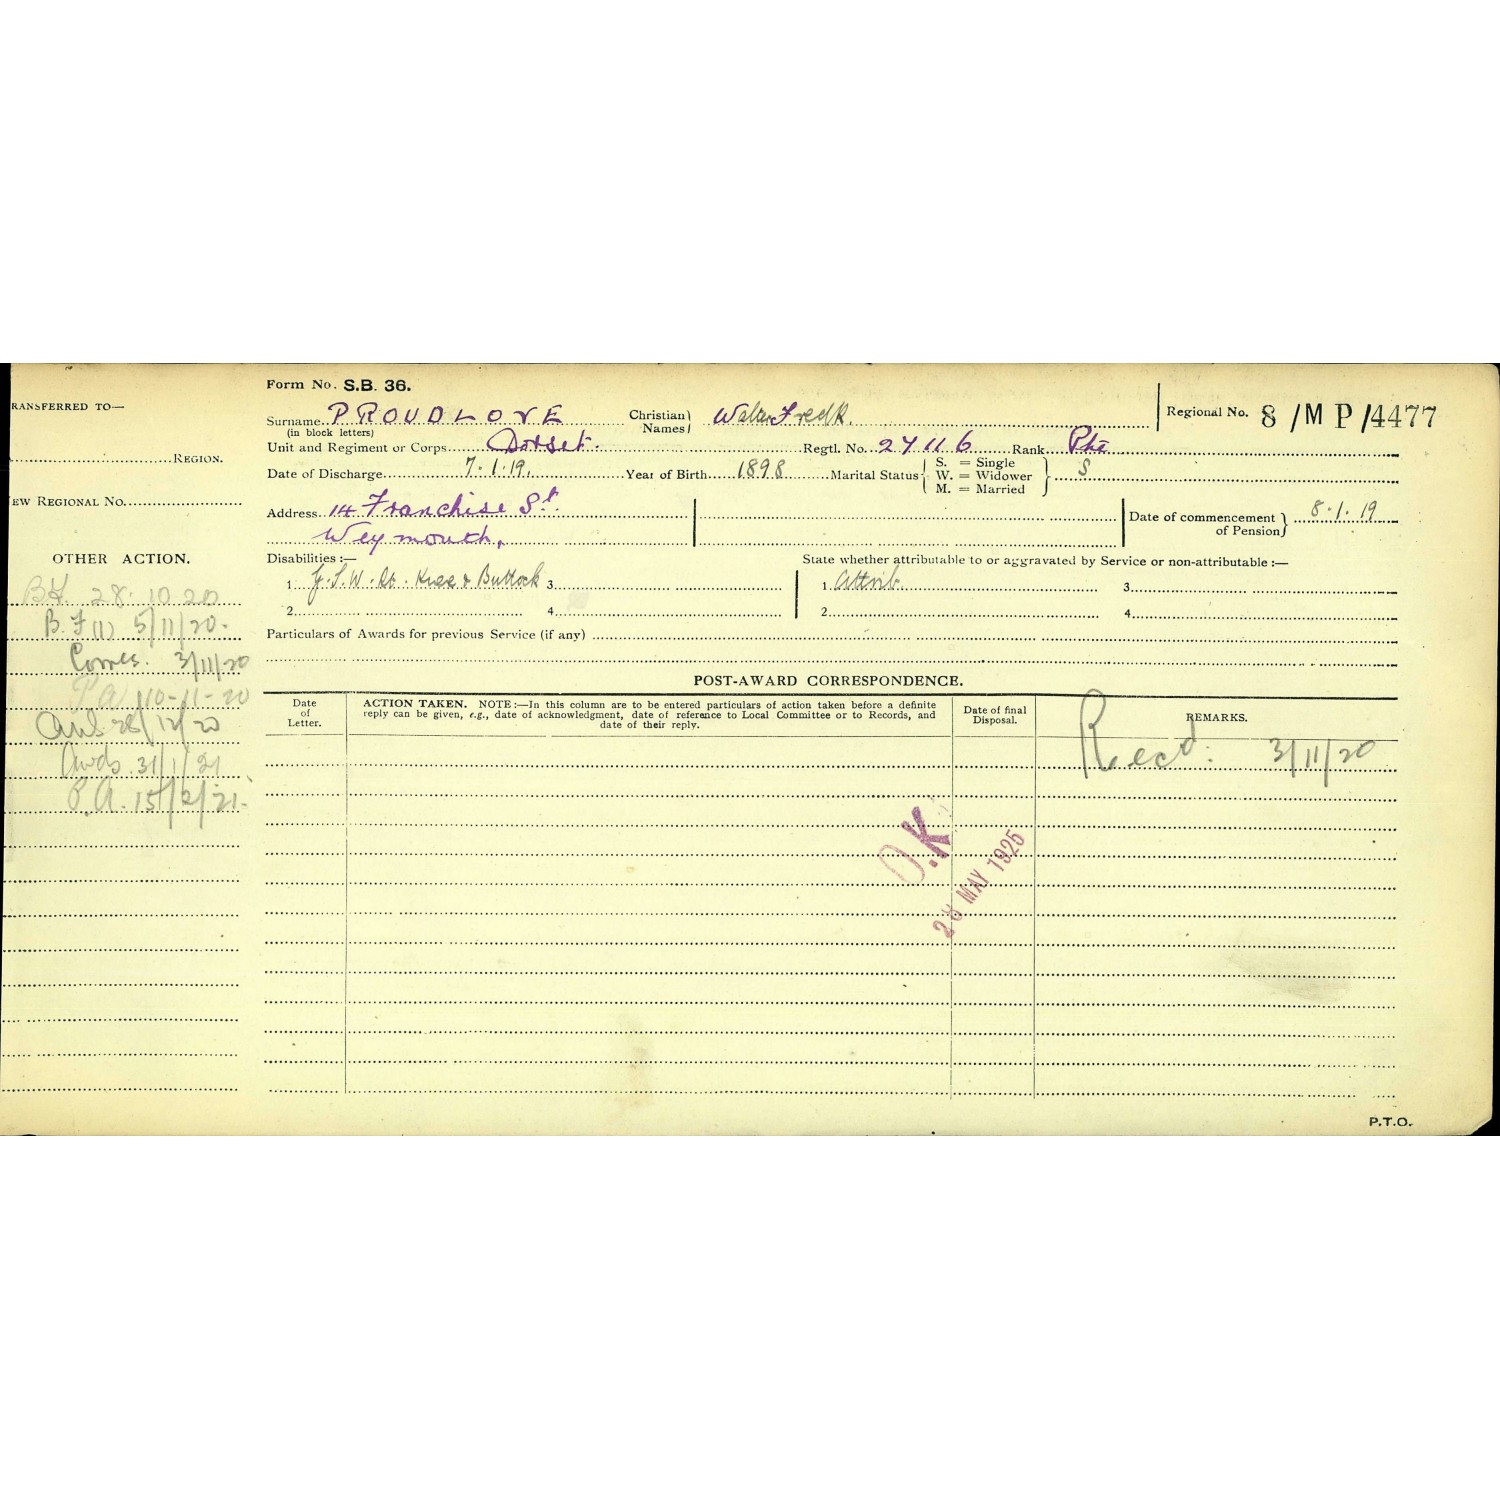 RANSFERRED TO—
REGION.
EW REGIONAL NO.
OTHER ACTION.
BH. 28.10.20
B.F (1) 5/11/20.
Corres. 3/11/20
P.A. 10-11-20
28/12/20
Awds. 31/1/21
P.A. 15/2/21.
Form No. S.B. 36.
Surname PROUDLOVE Christian Names} Walter Fredk. Regional No. 8/MP/4477
(in block letters)
Unit and Regiment or Corps Dorset. Regtl. No. 27116 Rank Pte
Date of Discharge 7.1.19. Year of Birth 1898 Marital Status { S. = Single W. = Widower M. = Married } S
Address 14 Franchise St. Date of commencement of Pension} 8.1.19
Weymouth,
Disabilities:— State whether attributable to or aggravated by Service or non-attributable:—
1. G.S.W. Rt. Knee & Buttock 3. 1. Attrib. 3.
2. 4. 2. 4.
Particulars of Awards for previous Service (if any)
POST-AWARD CORRESPONDENCE.
Date of Letter.
ACTION TAKEN. NOTE:—In this column are to be entered particulars of action taken before a definite
reply can be given, e.g., date of acknowledgment, date of reference to Local Committee or to Records, and
date of their reply.
Date of final Disposal.
REMARKS.
Recd. 3/11/20
O.K.
28 MAY 1925
P.T.O.